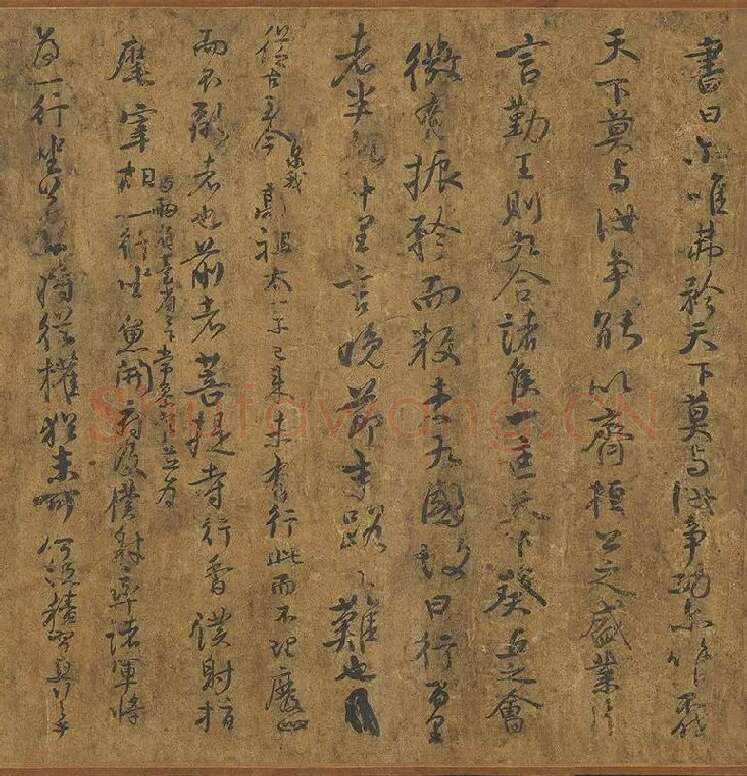 書曰尔唯弗矜天下莫与汝争功尔唯不伐
天下莫与汝争能以齊桓公之盛業片
言勤王則九合諸侯一匡天下葵丘之會
微有振矜而叛者九國故曰行百里
者半九十里言晚節末路之難也
從古至今暨我高祖太宗已來未有行此而不理廢此
而不亂者也前者菩提寺行香僕射指
麾宰相与兩省臺省已下常參官並為一行坐魚開府及僕射率諸軍將
為一行坐若一時從權猶未可何況積習更行之乎
shufawang.CN